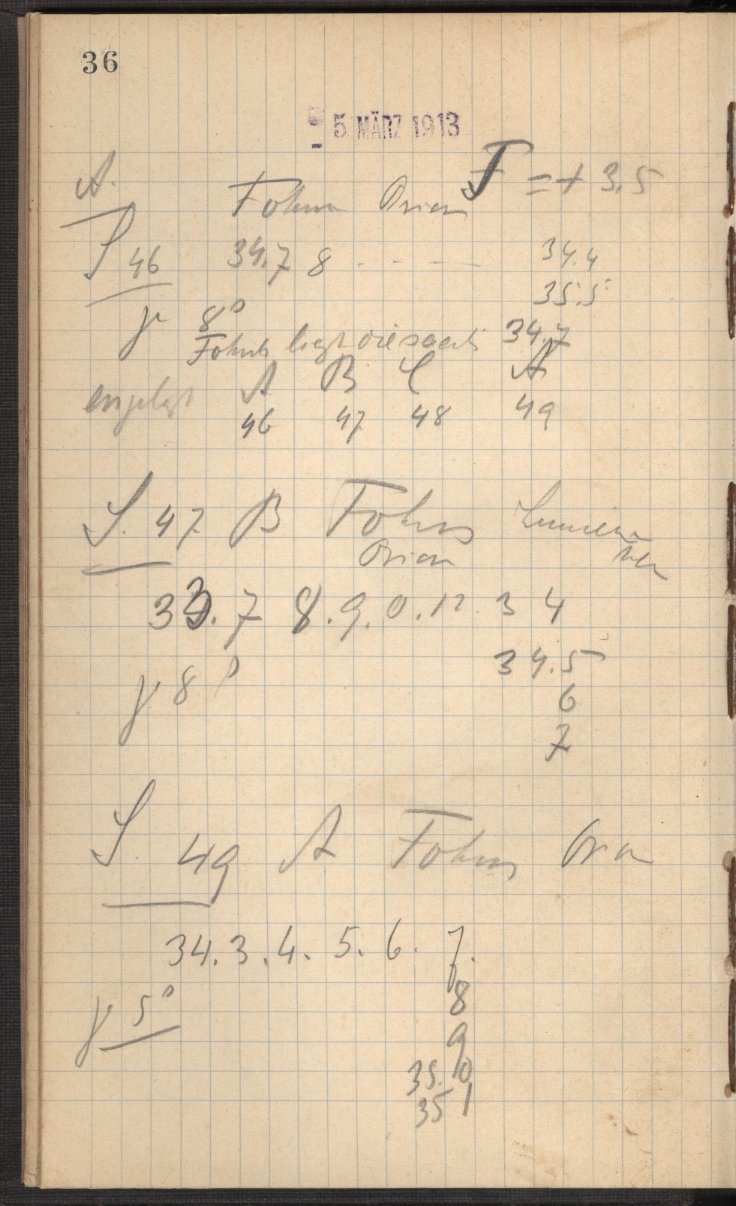 36
5 MÄRZ 1913
A. Fokus Orion T = + 3.5
S 46 34.7 8 - - - - 34.4
35.5
je 8° 34.7
Fokus liegt
A B C A
46 47 48 49
S. 47 B Fokus Lumiere
Orion
33.7 8.9.0.12 3 4
34.5
je 8° 6
7
S 49 A Fokus Orion
34.3.4.5.6.7.
8
je 5° 9
35.0
35 1